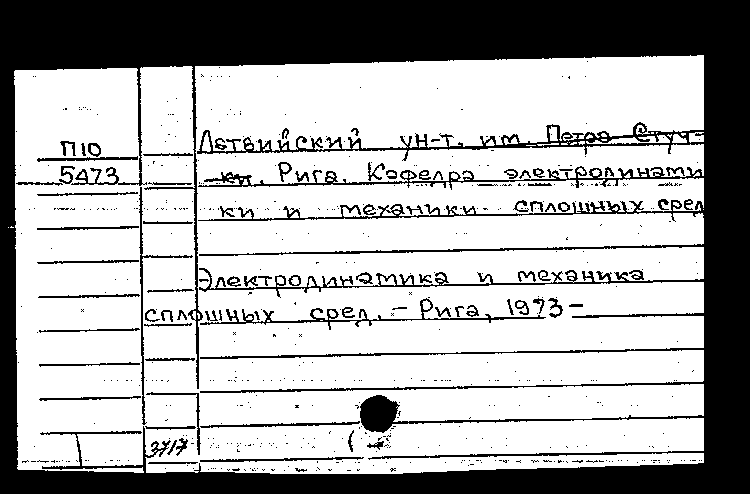 П10
5473
Латвийский ун-т. им. Петра Стуч-
ки. Рига. Кафедра электродинами
ки и механики сплошных сред
Электродинамика и механика
сплошных сред. - Рига, 1973 -
3717